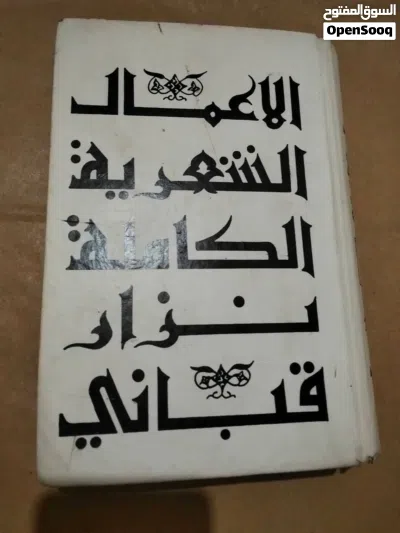 السوق المفتوح
OpenSooq
الاعمال
الشعرية
الكاملة
نزار
قباني